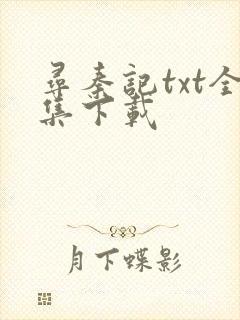 尋秦記txt全
集下載
月下蝶影